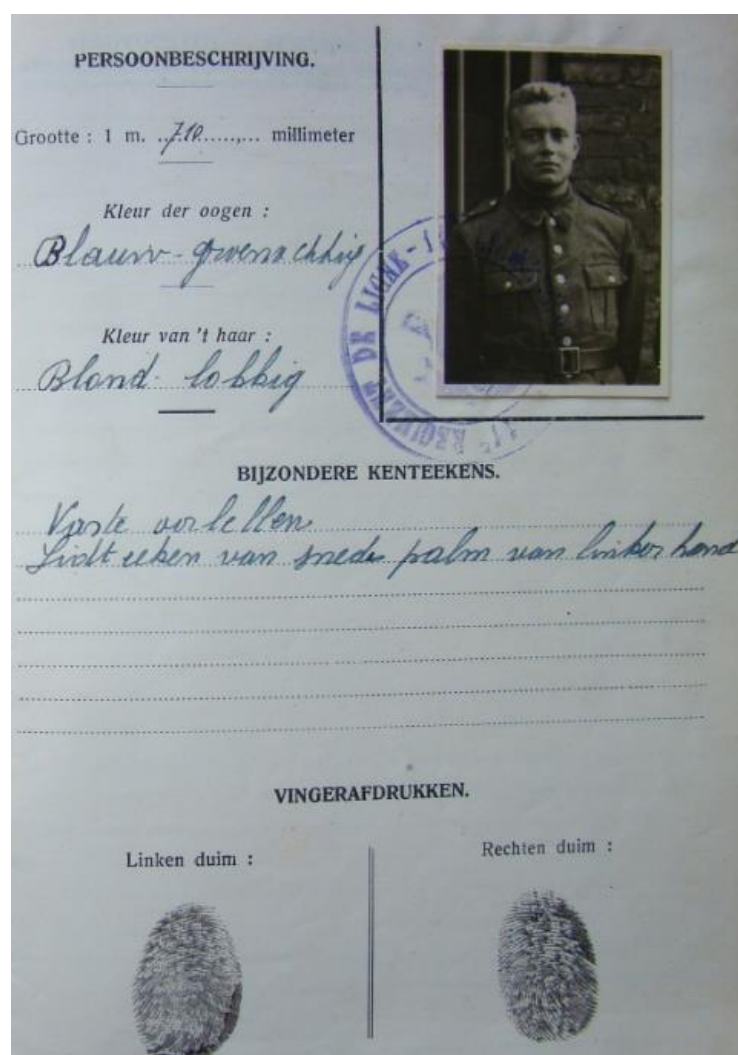 PERSOONBESCHRIJVING.
Grootte : 1 m. 710 millimeter
Kleur der oogen :
Blauw-groenachtig
Kleur van 't haar :
Blond lokkig
11e REGIMENT DE LIGNE - 1
BIJZONDERE KENTEEKENS.
Vaste oorlellen
Lidteeken van snede palm van linker hand
VINGERAFDRUKKEN.
Linken duim :
Rechten duim :